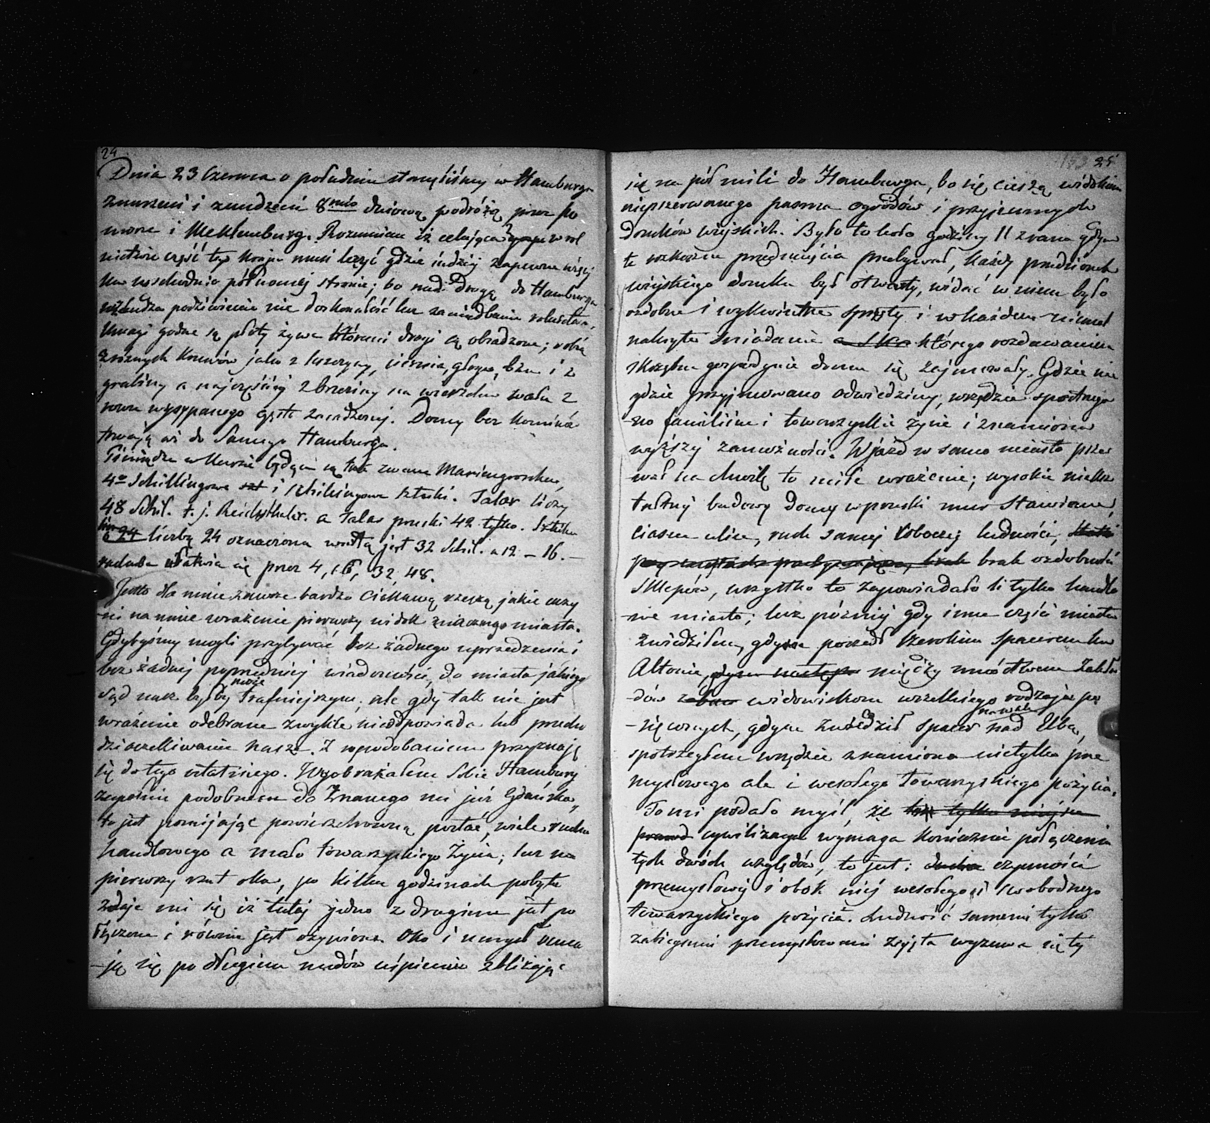 24
Dnia 23 Czerwca o południu stanęliśmy w Hamburgu
znużeni i znudzeni 8mio dniową podróżą przez Po
morze i Meklemburg. Rozumiem iż celująca w rol
nictwie część tego kraju musi leżyć gdzie indziej zapewne więcej
ku wschodnio północnej stronie; bo nad drogą do Hamburga
widzieć niedoskonałość lub zaniedbanie rolnictwa.
Uwagi godne są płoty żywe któremi drogi są obsadzone; robią
z różnych krzewów jako z leszczyny, ciernia, głogu, bzu i z
grabiny a najczęściej z brzeziny na wierzchu wału z
rowu wysypanego gęsto zasadzonej. Domy bez komina
trwają aż do samego Hamburga.
Pieniądze w kursie są tak zwane
4o Schillingowe i schillingowe sztuki. Talar liczy
48 Schil. t. j. Reichsthaler. a Talar pruski 42 tylko. Sztuka
24 liczbą 24 oznaczona wartą jest 32 Schil. a 12 – 16. –
rachuba ułatwia się przez 4, 16, 32, 48.
Jest to dla mnie zawsze bardzo ciekawą rzeczą jakie uczy
ni na mnie wrażenie pierwszy widok znacznego miasta.
Gdybyśmy mogli przybywać bez żadnego uprzedzenia i
bez żadnej poprzedniej wiadomości do miasta jakiego
sąd nasz byłby może trafniejszym, ale gdy tak nie jest
wrażenie odebrane zwykle nieodpowiada lub przecho
dzi oczekiwanie nasze. Z upodobaniem przyznaję
się do tego ostatniego. Wyobrażałem sobie Hamburg
zupełnie podobnem do znanego mi już Gdańska,
to jest pomijając powierzchowną postać, wiele ruchu
handlowego a mało towarzyskiego życia; lecz na
pierwszy rzut oka, po kilku godzinach pobytu
zdaje mi się iż tutaj jedno z drugiem jest po
łączone i równie jest ożywione. Oko i umysł
ją się po długiem nudów uśpieniu zbliżając
25
się na pół mili do Hamburga, bo się cieszą widokiem
nieprzerwanego pasma ogrodów i przyjemnych
domków wiejskich. Było to koło godziny 11 z rana gdym
te rozkoszne przedmieścia przebywał, każdy przedsionek
wiejskiego domku był otwarty, widać w nim było
ozdobne i wykwintne sprzęty i w każdem niemal
nakryte śniadanie a którego rozdawaniem
skrzętne gospodynie domu się zajmowały. Gdzie nie
gdzie przyjmowano odwiedziny, wszędzie spostrzega
no familijne i towarzyskie życie i znamiona
wyższej zamożności. Wjazd w samo miasto przer
wał na chwilę to miłe wrażenie; wysokie niekszt
tałtnej budowy domy w pruski mur stawiane,
ciasne ulice, ruch samej roboczej ludności,
brak ozdobności
sklepów, wszystko to zapowiadało li tylko handlo
we miasto; lecz poźniej gdy inne części miasta
zwiedziłem, gdym poszedł szerokim spacerem ku
Altonie, między mnóstwem zakła
dów widowiskom wszelkiego rodzaju po
święconych, gdym zwiedził spacer nad Elbą,
spostrzegłem wszędzie znamiona nietylko prze
mysłowego ale i wesołego towarzyskiego pożycia.
To mi podało myśl że
cywilizacya wymaga koniecznie połączenia
tych dwóch względów, to jest: czynności
przemysłowej i obok niej wesołego i swobodnego
towarzyskiego pożycia. Ludność samemi tylko
zabiegami przemysłowemi zajęta wyzuwa się tej